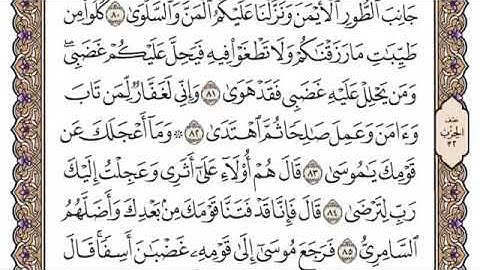 جَانِبَ ٱلطُّورِ ٱلۡأَيۡمَنَ وَنَزَّلۡنَا عَلَيۡكُمُ ٱلۡمَنَّ وَٱلسَّلۡوَىٰ ٨٠ كُلُواْ مِن
طَيِّبَٰتِ مَا رَزَقۡنَٰكُمۡ وَلَا تَطۡغَوۡاْ فِيهِ فَيَحِلَّ عَلَيۡكُمۡ غَضَبِيۖ
وَمَن يَحۡلِلۡ عَلَيۡهِ غَضَبِي فَقَدۡ هَوَىٰ ٨١ وَإِنِّي لَغَفَّارٞ لِّمَن تَابَ
وَءَامَنَ وَعَمِلَ صَٰلِحٗا ثُمَّ ٱهۡتَدَىٰ ٨٢ ۞ وَمَآ أَعۡجَلَكَ عَن
قَوۡمِكَ يَٰمُوسَىٰ ٨٣ قَالَ هُمۡ أُوْلَآءِ عَلَىٰٓ أَثَرِي وَعَجِلۡتُ إِلَيۡكَ
رَبِّ لِتَرۡضَىٰ ٨٤ قَالَ فَإِنَّا قَدۡ فَتَنَّا قَوۡمَكَ مِنۢ بَعۡدِكَ وَأَضَلَّهُمُ
ٱلسَّامِرِيُّ ٨٥ فَرَجَعَ مُوسَىٰٓ إِلَىٰ قَوۡمِهِۦ غَضۡبَٰنَ أَسِفٗاۚ قَالَ
نصف
الحزب
٣٢